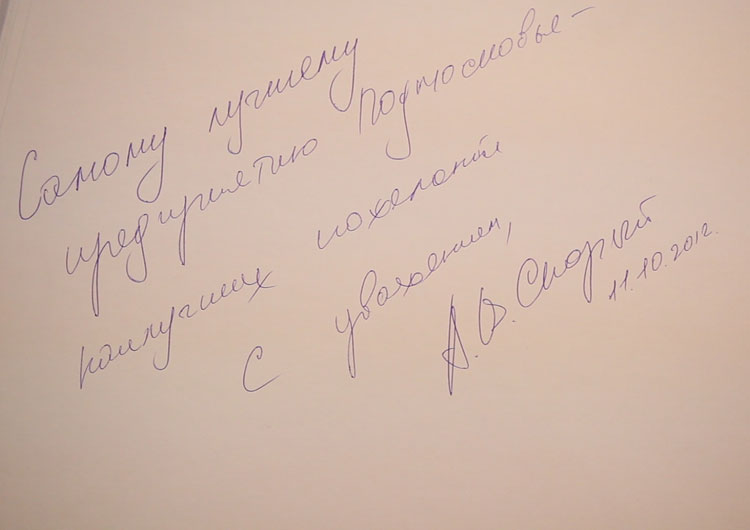 Самому лучшему
предприятию Подмосковье -
наилучших пожеланий
С уважением,
А.В. Скорый
11.10.2012г.